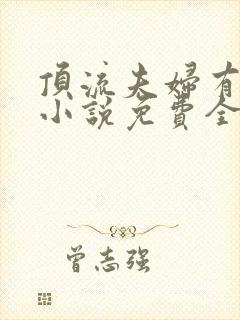 頂流夫婦有
小說免費全
曾志强